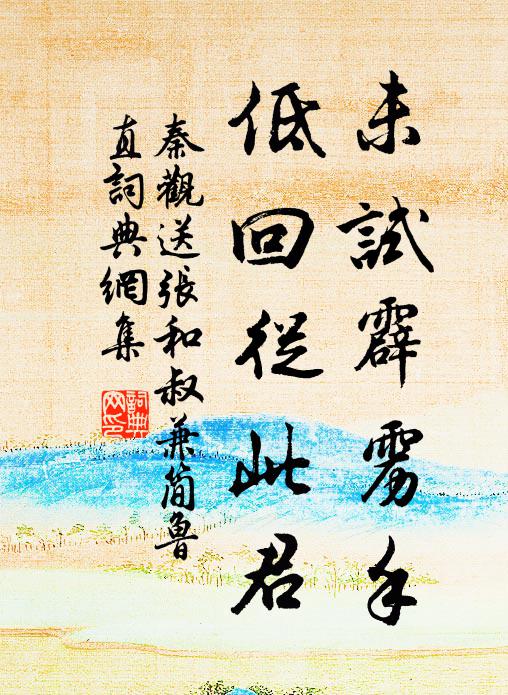 未試霹靂手
低回從此君
秦觀送張和叔兼簡魯
直詞典網集
詞典
网印